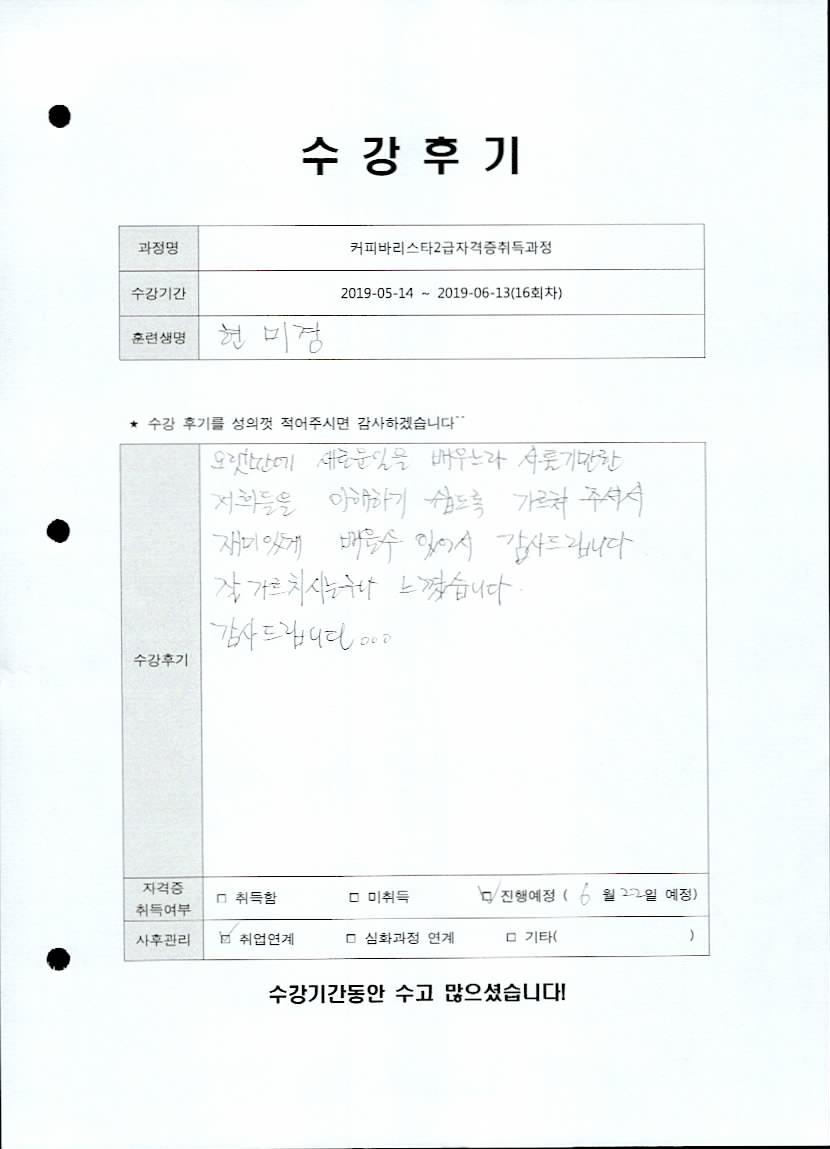 수 강 후 기
과정명 커피바리스타2급자격증취득과정
수강기간 2019-05-14 ~ 2019-06-13(16회차)
훈련생명 현 미경
★ 수강 후기를 성의껏 적어주시면 감사하겠습니다^^
오랫만에 새로운일을 배우느라 서툴기만한
저희들을 이해하기 쉽도록 가르쳐 주셔서
재미있게 배울수 있어서 감사드립니다
잘 가르치시는구나 느꼈습니다.
감사드립니다...
수강후기
자격증
취득여부 □ 취득함 □ 미취득 ☑ 진행예정 ( 6 월 22일 예정)
사후관리 ☑ 취업연계 □ 심화과정 연계 □ 기타( )
수강기간동안 수고 많으셨습니다!